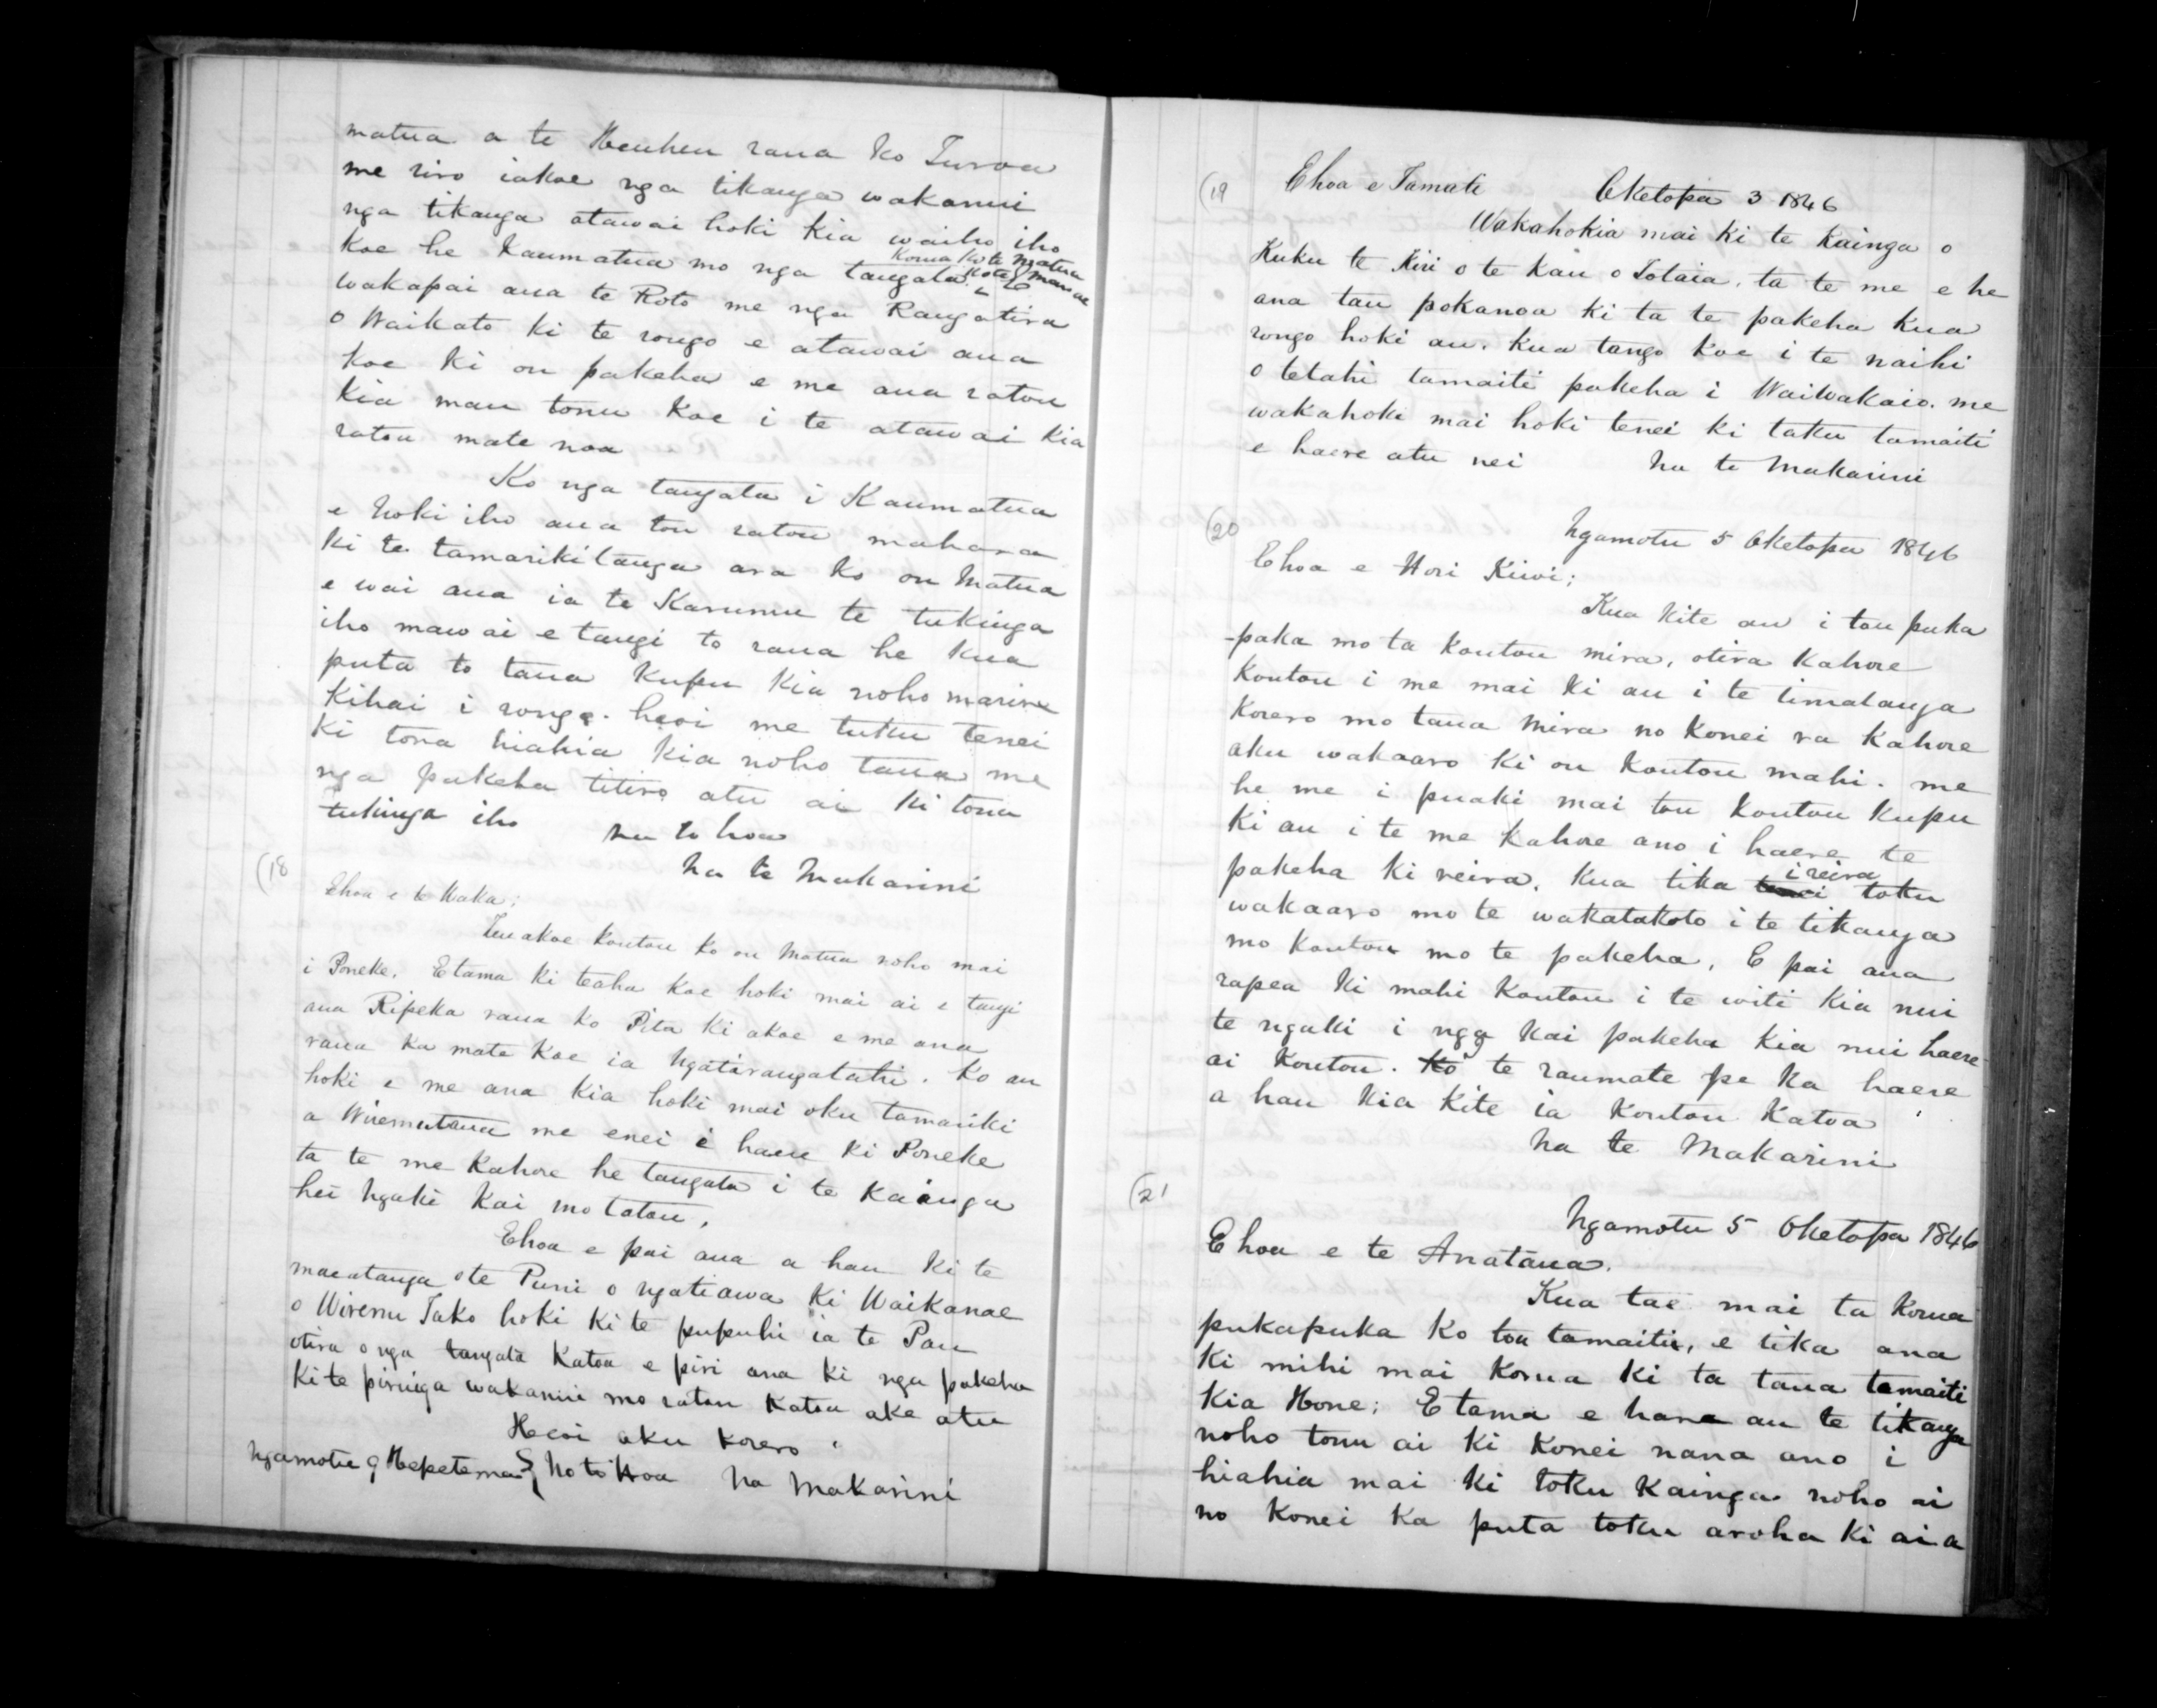 matua a te Heuheu raua ko Turoa
me riro iakoe nga tikanga wakanui
nga tikanga atawai hoki kia waiho iho
koe he kaumatua mo nga tangata
korua ko te matua
wakapai ana te Roto me nga Rangatira
o Waikato ki te rongo e atawai ana
koe ki ou pakeha e me ana ratou
kia mau tonu koe i te atawai kia
ratou mate noa
Ko nga tangata i Kaumatua
e hoki iho ana tou ratou mahara
ki te tamarikitanga ara ko ou Matua
e wai ana ia te Karumu te tukinga
iho mawai e tangi to raua he kua
puta to taua kupu kia noho marire
kihai i rongo. heoi me tuku tenei
ki tona hiahia kia noho taua me
nga pakeha titiro atu ai ki tona
tukinga iho na to hoa
na te Makarini
(18
Ehoa e te Waka;
Tenakoe koutou ko ou Matua noho mai
i Poneke. Etama ki teaha koe hoki mai ai e tangi
ana Ripeka raua ko Pita ki akoe e me ana
raua ka mate koe ia Ngatirangatahi. Ko au
hoki e me ana kia hoki mai oku tamariki
a Wiremutana me enei i haere ki Poneke
ta te me kahore he tangata i te kainga
hei ngaki kai mo tatou.
Ehoa e pai ana a hau ki te
maeatanga o te Puni o ngatiawa ki Waikanae
o Wiremu Tako hoki ki te pupuhi ia te Pau
otira o nga tangata katoa e piri ana ki nga pakeha
ki te piringa wakanui mo ratou katoa ake atu
Heoi aku korero
Ngamotu 9 Hepetema Na to Hoa Na Makarini
(19
Ehoa e Tamati Oketopa 3 1846
Wakahokia mai ki te kainga o
Kuku te Kiri o te Kau o Totaia, ta te me e he
ana tau pokanoa ki ta te pakeha kua
rongo hoki au. kua tango koe i te naihi
o tetahi tamaiti pakeha i Waiwakaio. me
wakahoki mai hoki tenei ki taku tamaiti
e haere atu nei Na te Makarini
(20
Ngamotu 5 Oketopa 1846
Ehoa e Hori Kiwi;
Kua kite au i tou puka
-puka mo ta koutou mira, otira kahore
koutou i me mai ki au i te timatanga
korero mo taua mira no konei ra kahore
aku wakaaro ki ou koutou mahi. me
he me i puaki mai tou koutou kupu
ki au i te me kahore ano i haere te
pakeha ki reira, kua tika i reira toku
wakaaro mo te wakatakoto i te tikanga
mo koutou mo te pakeha. E pai ana
rapea ki mahi koutou i te witi kia nui
te ngaki i nga kai pakeha kia nui haere
ai koutou. Ko te raumate pe ka haere
a hau kia kite ia koutou katoa
Na te Makarini
(21
Ngamotu 5 Oketopa 1846
Ehoa e te Anataua.
Kua tae mai ta korua
pukapuka ko tou tamaiti, e tika ana
ki mihi mai korua ki ta taua tamaiti
kia Hone; Etama e hara au te tikanga
noho tonu ai ki konei nana ano i
hiahia mai ki toku kainga noho ai
no konei ka puta toku aroha ki aia